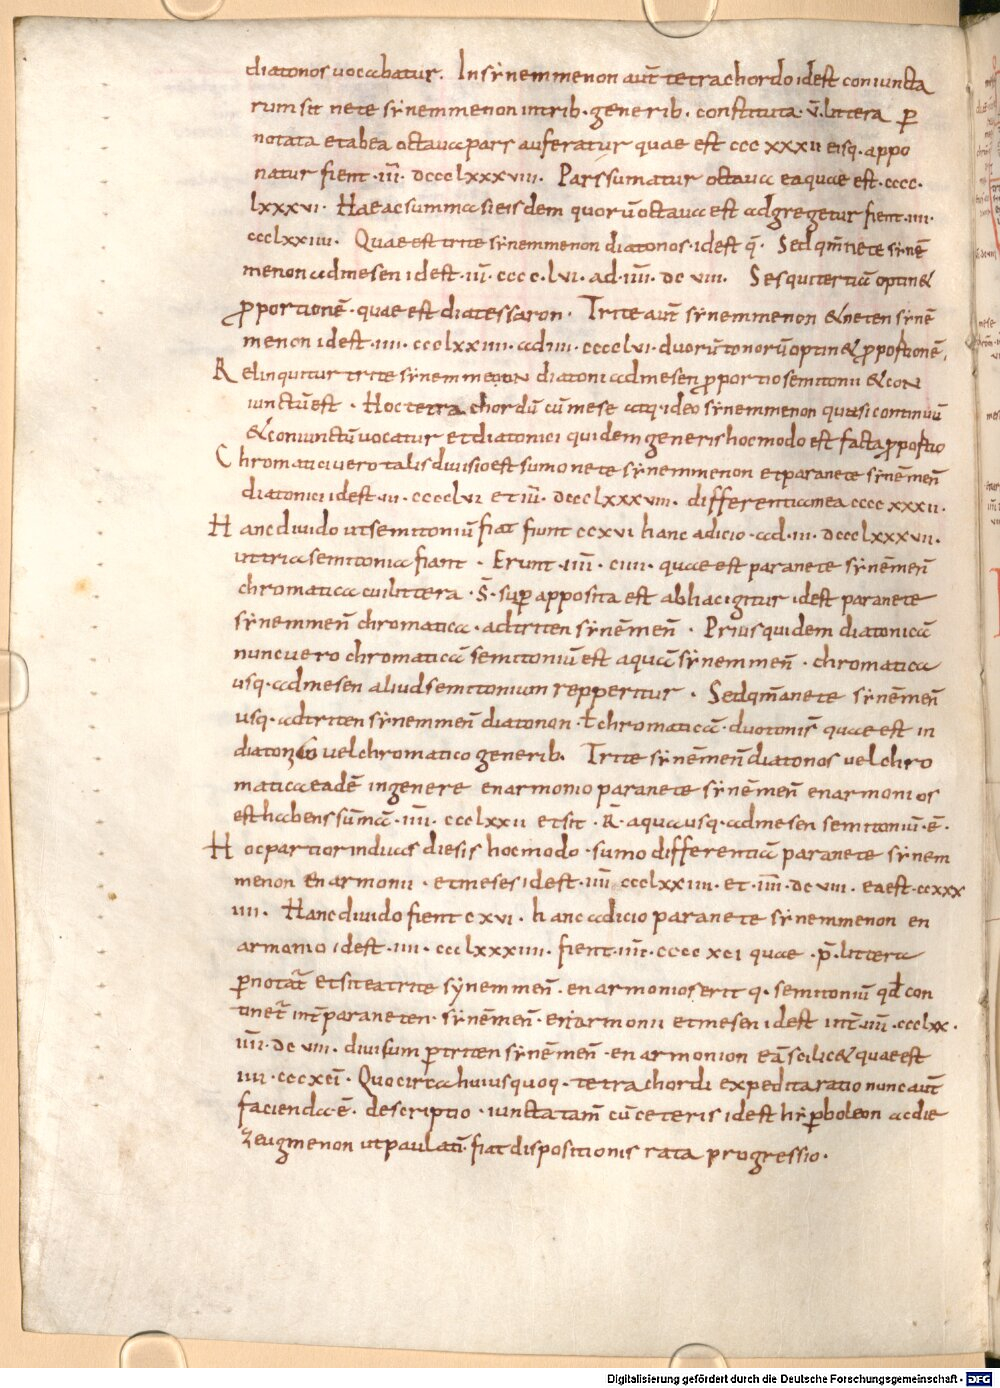 diatonos uocabatur. In synemmenon aut̄ tetrachordo idest coniuncta
rum sit nete synemmenon in trib. generib. constituta. v̄. littera p̱
notata et ab ea octaua pars auferatur quae est ccc xxxii eisq. appo
natur fient .iii. dcccclxxxviii. Pars sumatur octaua ea quae est .cccc.
lxxxvi. Haeac summa si eisdem quorū octaua est adgregetur fient .iiii.
ccclxxiiii. Quae est trite synemmenon diatonos .idest q̄. Sed qm̄ nete synē
menon ad mesen idest .iii. cccc.lvi. ad .iiii. dc viii. Sesquitertiā optin&
p̱portionē. quae est diatessaron. Trite aut̄ synemmenon & neten synē
menon idest .iiii. ccclxxiiii. ad .iii. cccclvi. duorū tonorū optin& p̱postionē,
Relinquitur trite synemmenon diatoni ad mesen p̱portio semitonii & con
iunctū est. Hoc tetrachordū cū mese atq. ideo synemmenon quasi continuū
& coniunctū uocatur et diatonici quidem generis hoc modo est facta p̱postio
Chromatici uero talis diuisio est sumo nete synemmenon et paranete synēmen̄
diatonici idest .iii. cccclvi et iii. dccclxxxviii. differentiam ea cccc xxxii.
Hanc diuido ut semitoniū fiat fiunt ccxvi hanc adicio .ad .iii. dccclxxxviii.
ut tria semitonia fiant. Erunt .iiii. ciiii. quae est paranete synēmen̄
chromatica cui littera .S̄. sup̱ apposita est ab hac igitur idest paranete
synemmen̄ chromatica. ad triten synēmen̄. Prius quidem diatonicā
nunc uero chromaticā semitoniū est a qua synemmen̄. chromatica
usq. ad mesen aliud semitonium repperitur. Sed qm̄ a nete synēmen̄
usq. ad triten synemmen̄ diatonon .ł chromaticā. duo toni s̄ quae est in
diatonico uel chromatico generib. Trite synēmen̄ diatonos uel chro
matica eadē in genere enarmonio paranete synēmen̄ enarmonios
est habens sūmā .iiii. ccclxxii et sit .R̄. a qua usq. ad mesen semitoniū .ē.
Hoc partior in duas diesis hoc modo. sumo differentiā paranete synem
menon enarmonii. et meses idest .iiii. ccclxxiiii. et .iiii. dc viii. ea est .ccxxx
iiii. Hanc diuido fient cxvi. hanc adicio paranete synemmenon en
armonio idest .iiii. ccclxxxiiii. fient .iiii. cccc xci quae .p̄. littera
p̱notat̄ et sit ea trite synemmen̄. enarmonios erit q. semitoniū qđ con
tinet̄ int̄ paraneten. synēmen̄. enarmonii et mesen idest int̄ .iiii. ccclxx.
iiii. dc viii. diuisum p̱ triten synēmen̄. enarmonion eā scilic& quae est
iiii. cccxci. Quocirca huius quoq. tetrachordi expedita ratio nunc aut̄
facienda ē. descriptio. iuncta tam̄ cū ceteris idest hyp̱boleon ac die
zeugmenon ut paulatī. fiat dispositionis rata progressio.
Digitalisierung gefördert durch die Deutsche Forschungsgemeinschaft - DFG